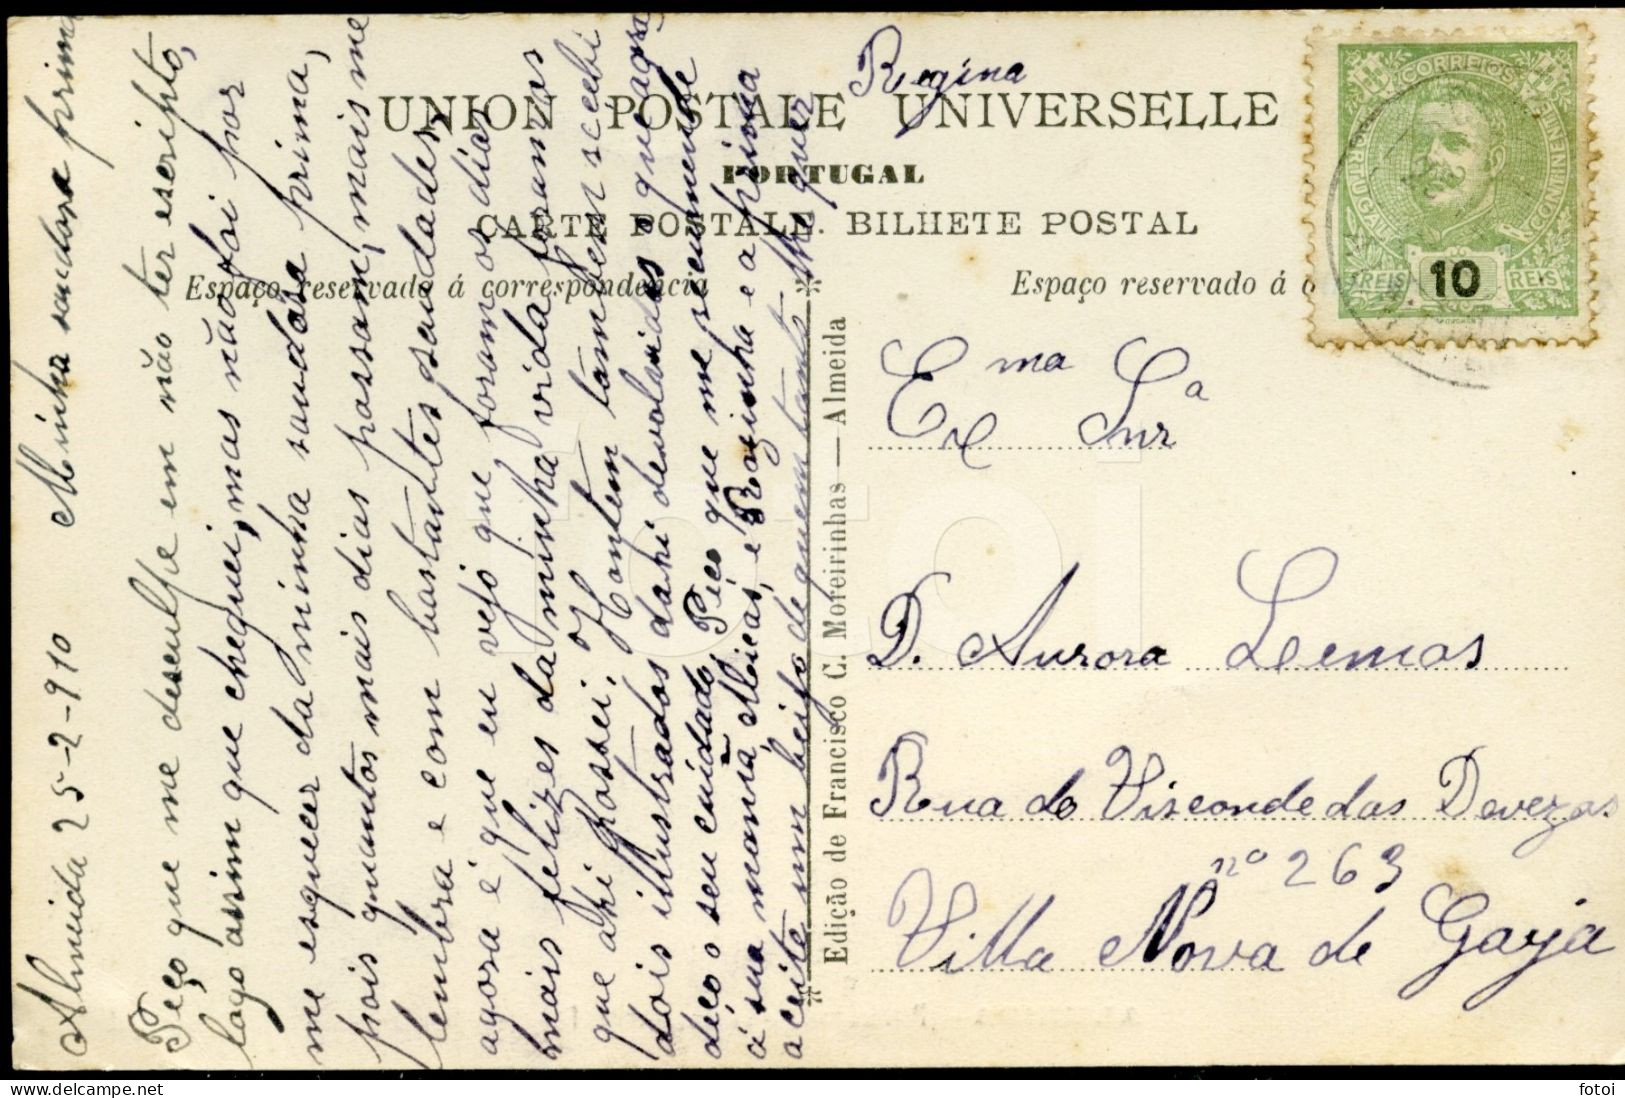 Almeida 25-2-910 Minha saudosa prima
Peço que me desculpe em não ter escripto,
logo assim que cheguei, mas não foi por
me esquecer da minha saudosa prima,
pois quantos mais dias passam, mais me
lembra e com bastantes saudades,
agora é que eu vejo que foram os dias
mais felizes da minha vida foram os
que ahi passei. Hontem tambem recebi
dois illustrados dahi devolvidos que agora
deço o seu cuidado. Peço que me recommende
á sua mamã, Meicas, e Rozinha e a prima
aceite um beijo de quem tanto lhe quer
Regina
UNION POSTALE UNIVERSELLE
PORTUGAL
CARTE POSTALE. BILHETE POSTAL
Espaço reservado á correspondencia
Espaço reservado á
CORREIOS
PORTUGAL
CONTINENTE
REIS 10 REIS
Edição de Francisco C. Moreirinhas — Almeida
Exma Snrª
D. Aurora Lemos
Rua do Visconde das Devezas
nº 263
Villa Nova de Gaya
fotoi
delcampe.net
fotoi